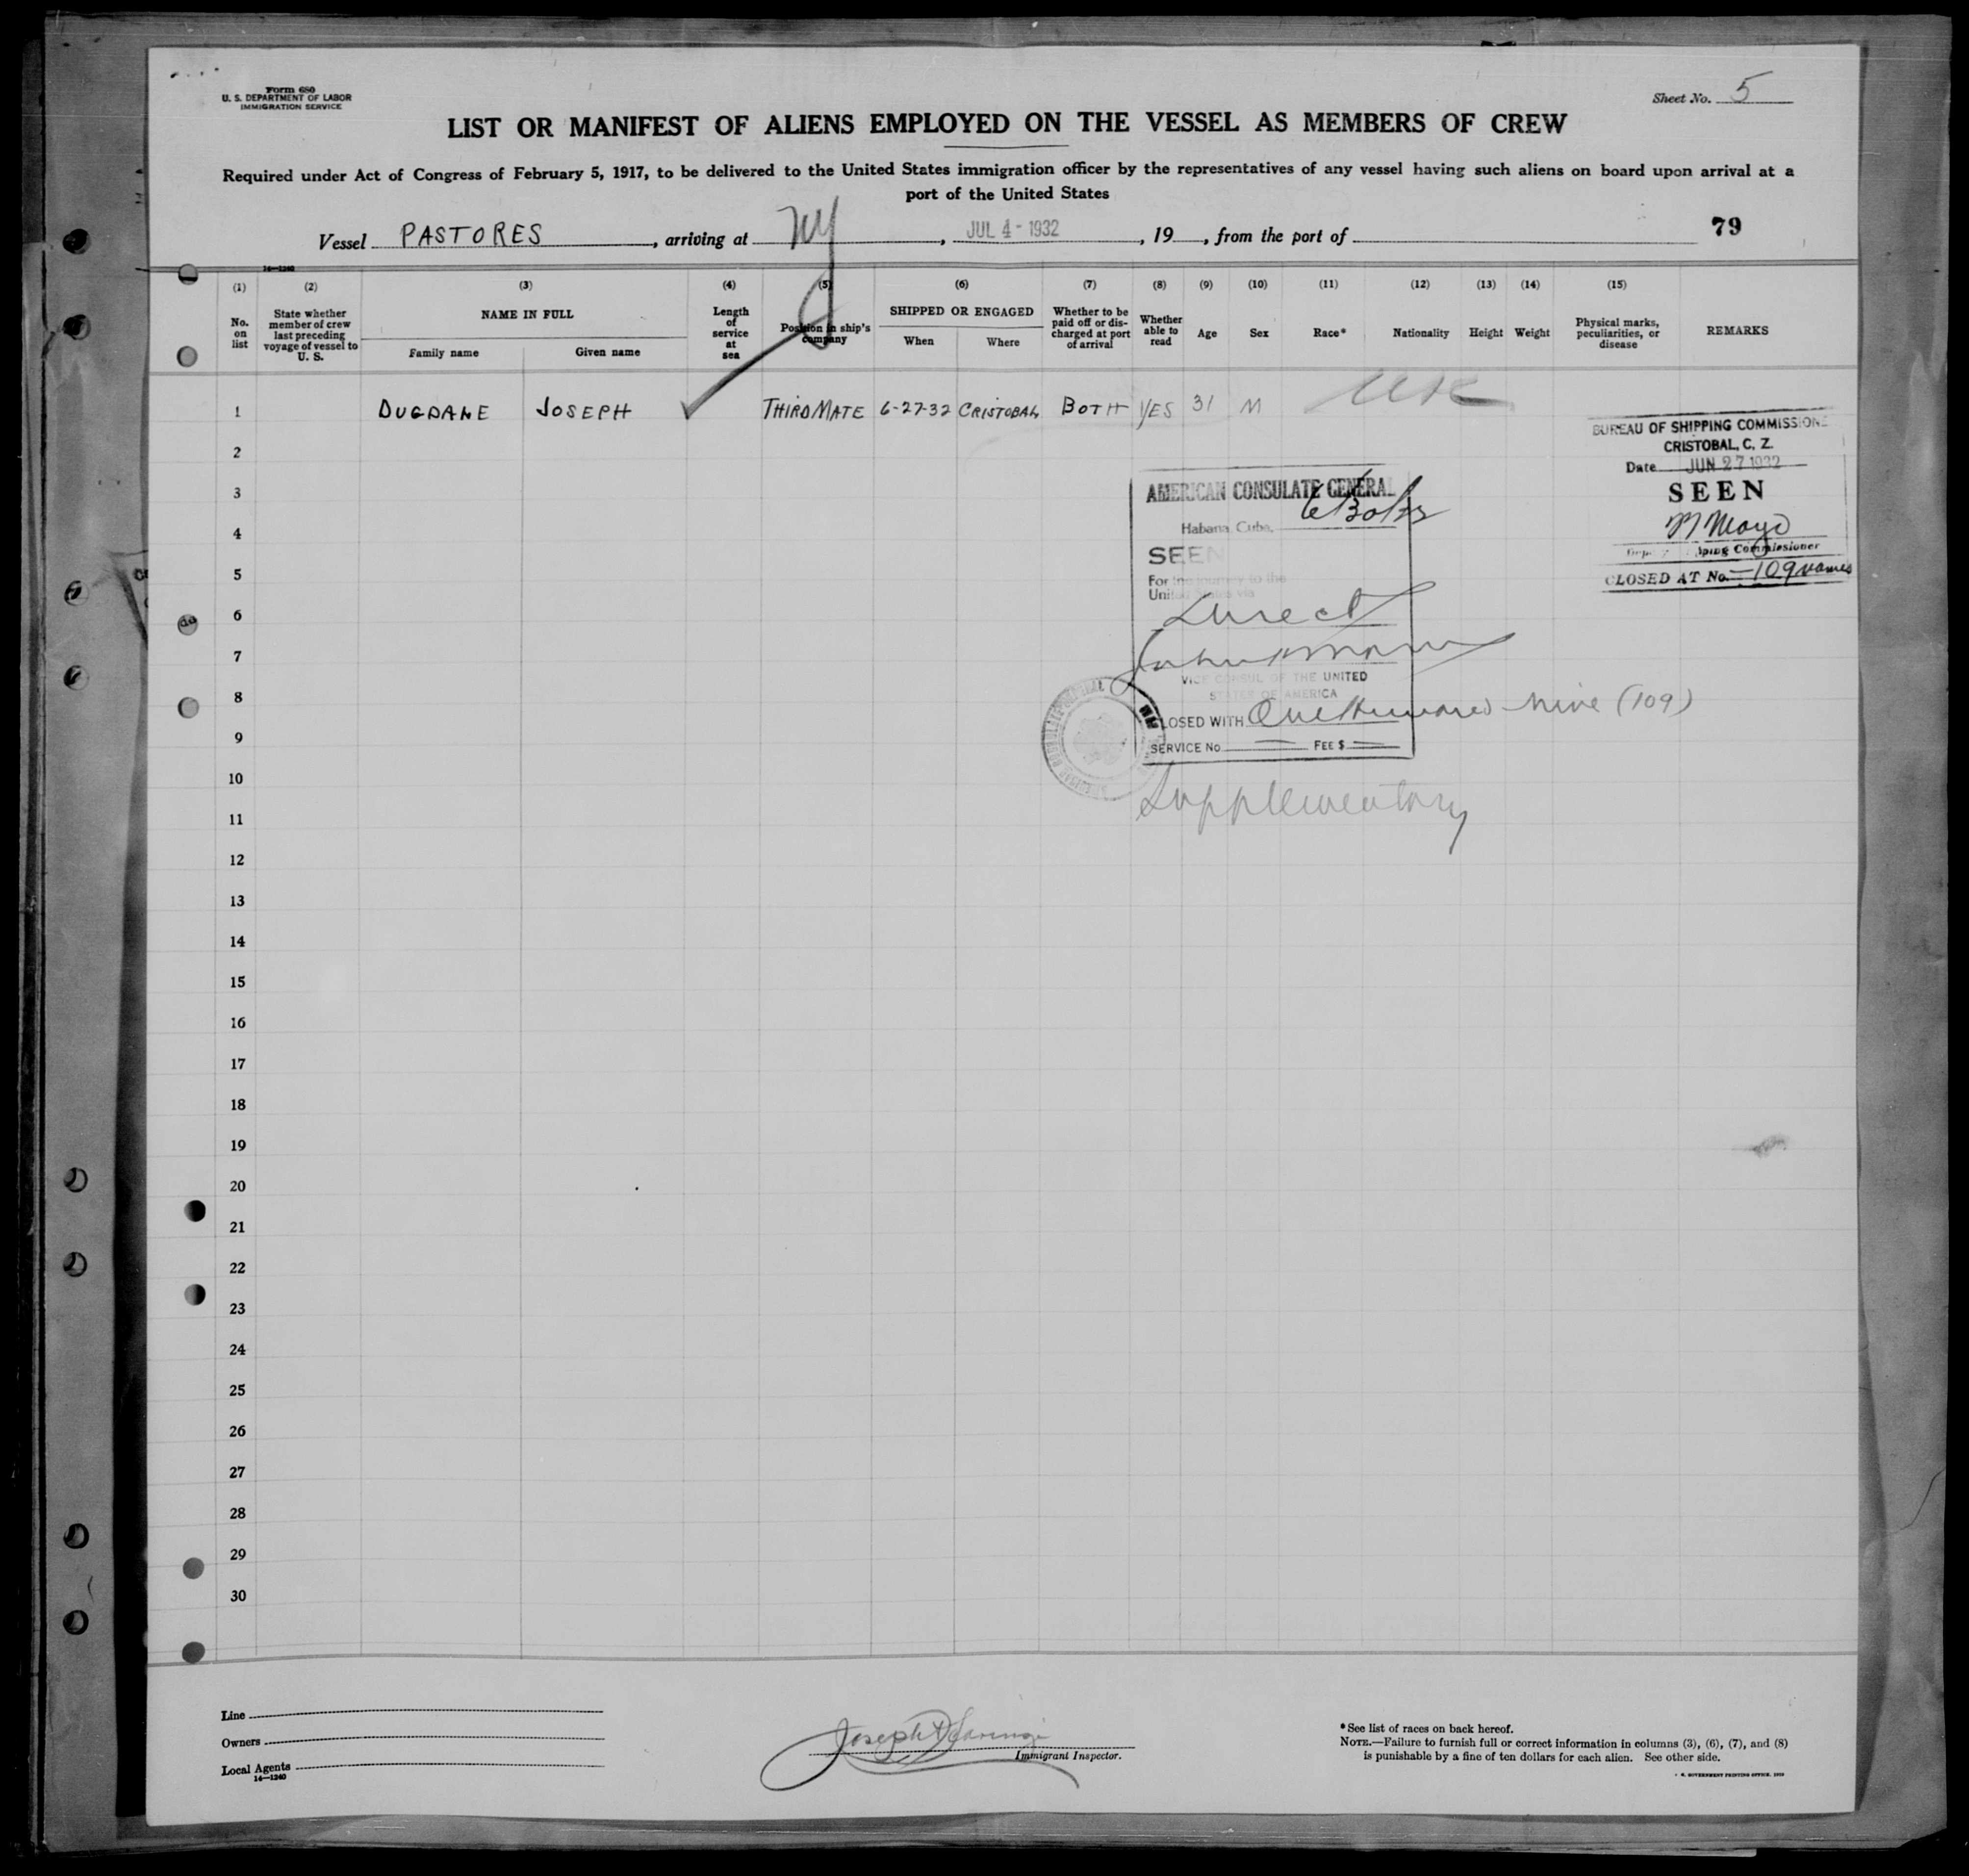 Form 680
U. S. DEPARTMENT OF LABOR
IMMIGRATION SERVICE
Sheet No. 5
LIST OR MANIFEST OF ALIENS EMPLOYED ON THE VESSEL AS MEMBERS OF CREW
Required under Act of Congress of February 5, 1917, to be delivered to the United States immigration officer by the representatives of any vessel having such aliens on board upon arrival at a
port of the United States
Vessel PASTORES, arriving at NY, JUL 4 - 1932, 19, from the port of
79
14—1240
(1) (2) (3) (4) (5) (6) (7) (8) (9) (10) (11) (12) (13) (14) (15)
No. on list
State whether member of crew last preceding voyage of vessel to U. S.
NAME IN FULL
Family name Given name
Length of service at sea
Position in ship's company
SHIPPED OR ENGAGED
When Where
Whether to be paid off or discharged at port of arrival
Whether able to read
Age
Sex
Race*
Nationality
Height
Weight
Physical marks, peculiarities, or disease
REMARKS
1 DUGDALE JOSEPH THIRD MATE 6-27-32 CRISTOBAL BOTH YES 31 M
2
3
4
5
6
7
8
9
10
11
12
13
14
15
16
17
18
19
20
21
22
23
24
25
26
27
28
29
30
BUREAU OF SHIPPING COMMISSIONE
CRISTOBAL, C. Z.
Date JUN 27 1932
SEEN
Commissioner
CLOSED AT No. 109 names
AMERICAN CONSULATE GENERAL
Habana, Cuba,
SEEN
For the journey to the
United States via
Direct
VICE CONSUL OF THE UNITED
STATES OF AMERICA
LOSED WITH One Hundred Nine (109)
SERVICE No FEE $
Supplementary
Line
Owners
Local Agents
14—1240
Joseph
Immigrant Inspector.
*See list of races on back hereof.
NOTE.—Failure to furnish full or correct information in columns (3), (6), (7), and (8)
is punishable by a fine of ten dollars for each alien. See other side.
GOVERNMENT PRINTING OFFICE